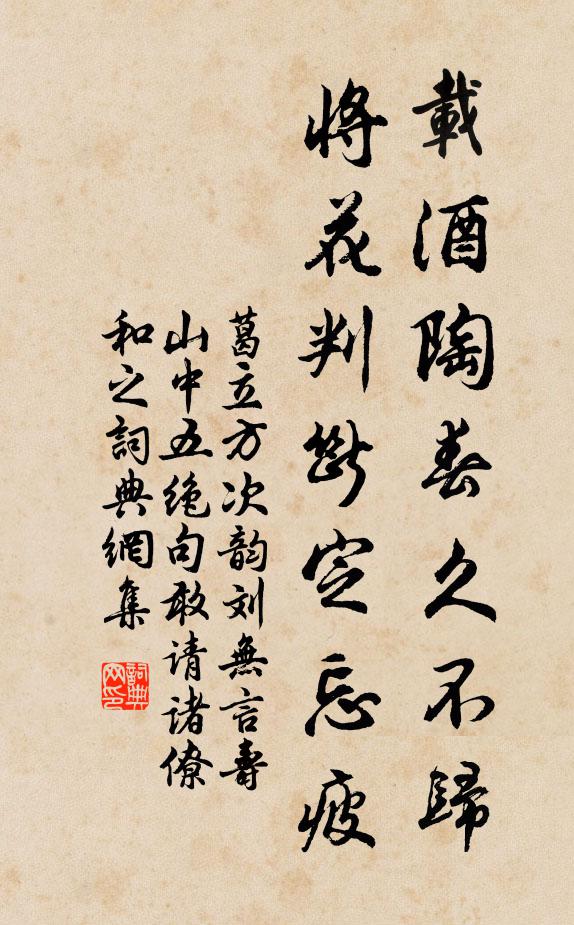 載酒陶春久不歸
將花判斷定忘疲
葛立方次韵刘無言壽
山中五绝句敢请诸僚
和之詞典網集
詞典网印